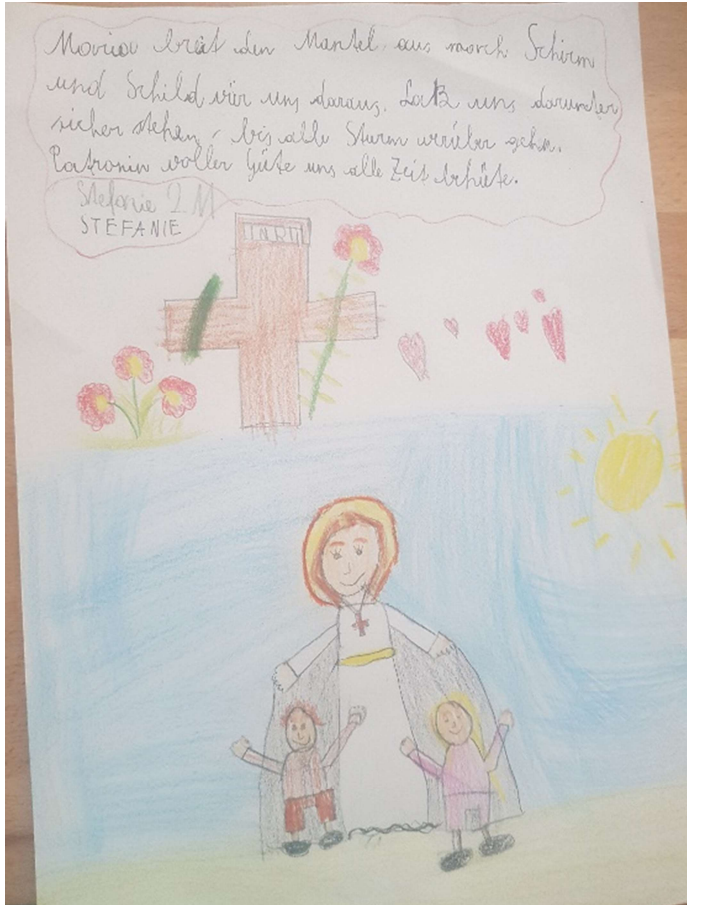 Maria breit den Mantel aus mach Schirm
und Schild vür uns daraus. Laß uns darunter
sicher stehen, bis alle Sturm vrüber gehn.
Patronin voller Güte uns alle Zeit behüte.
Stefanie 2M
STEFANIE
INRI